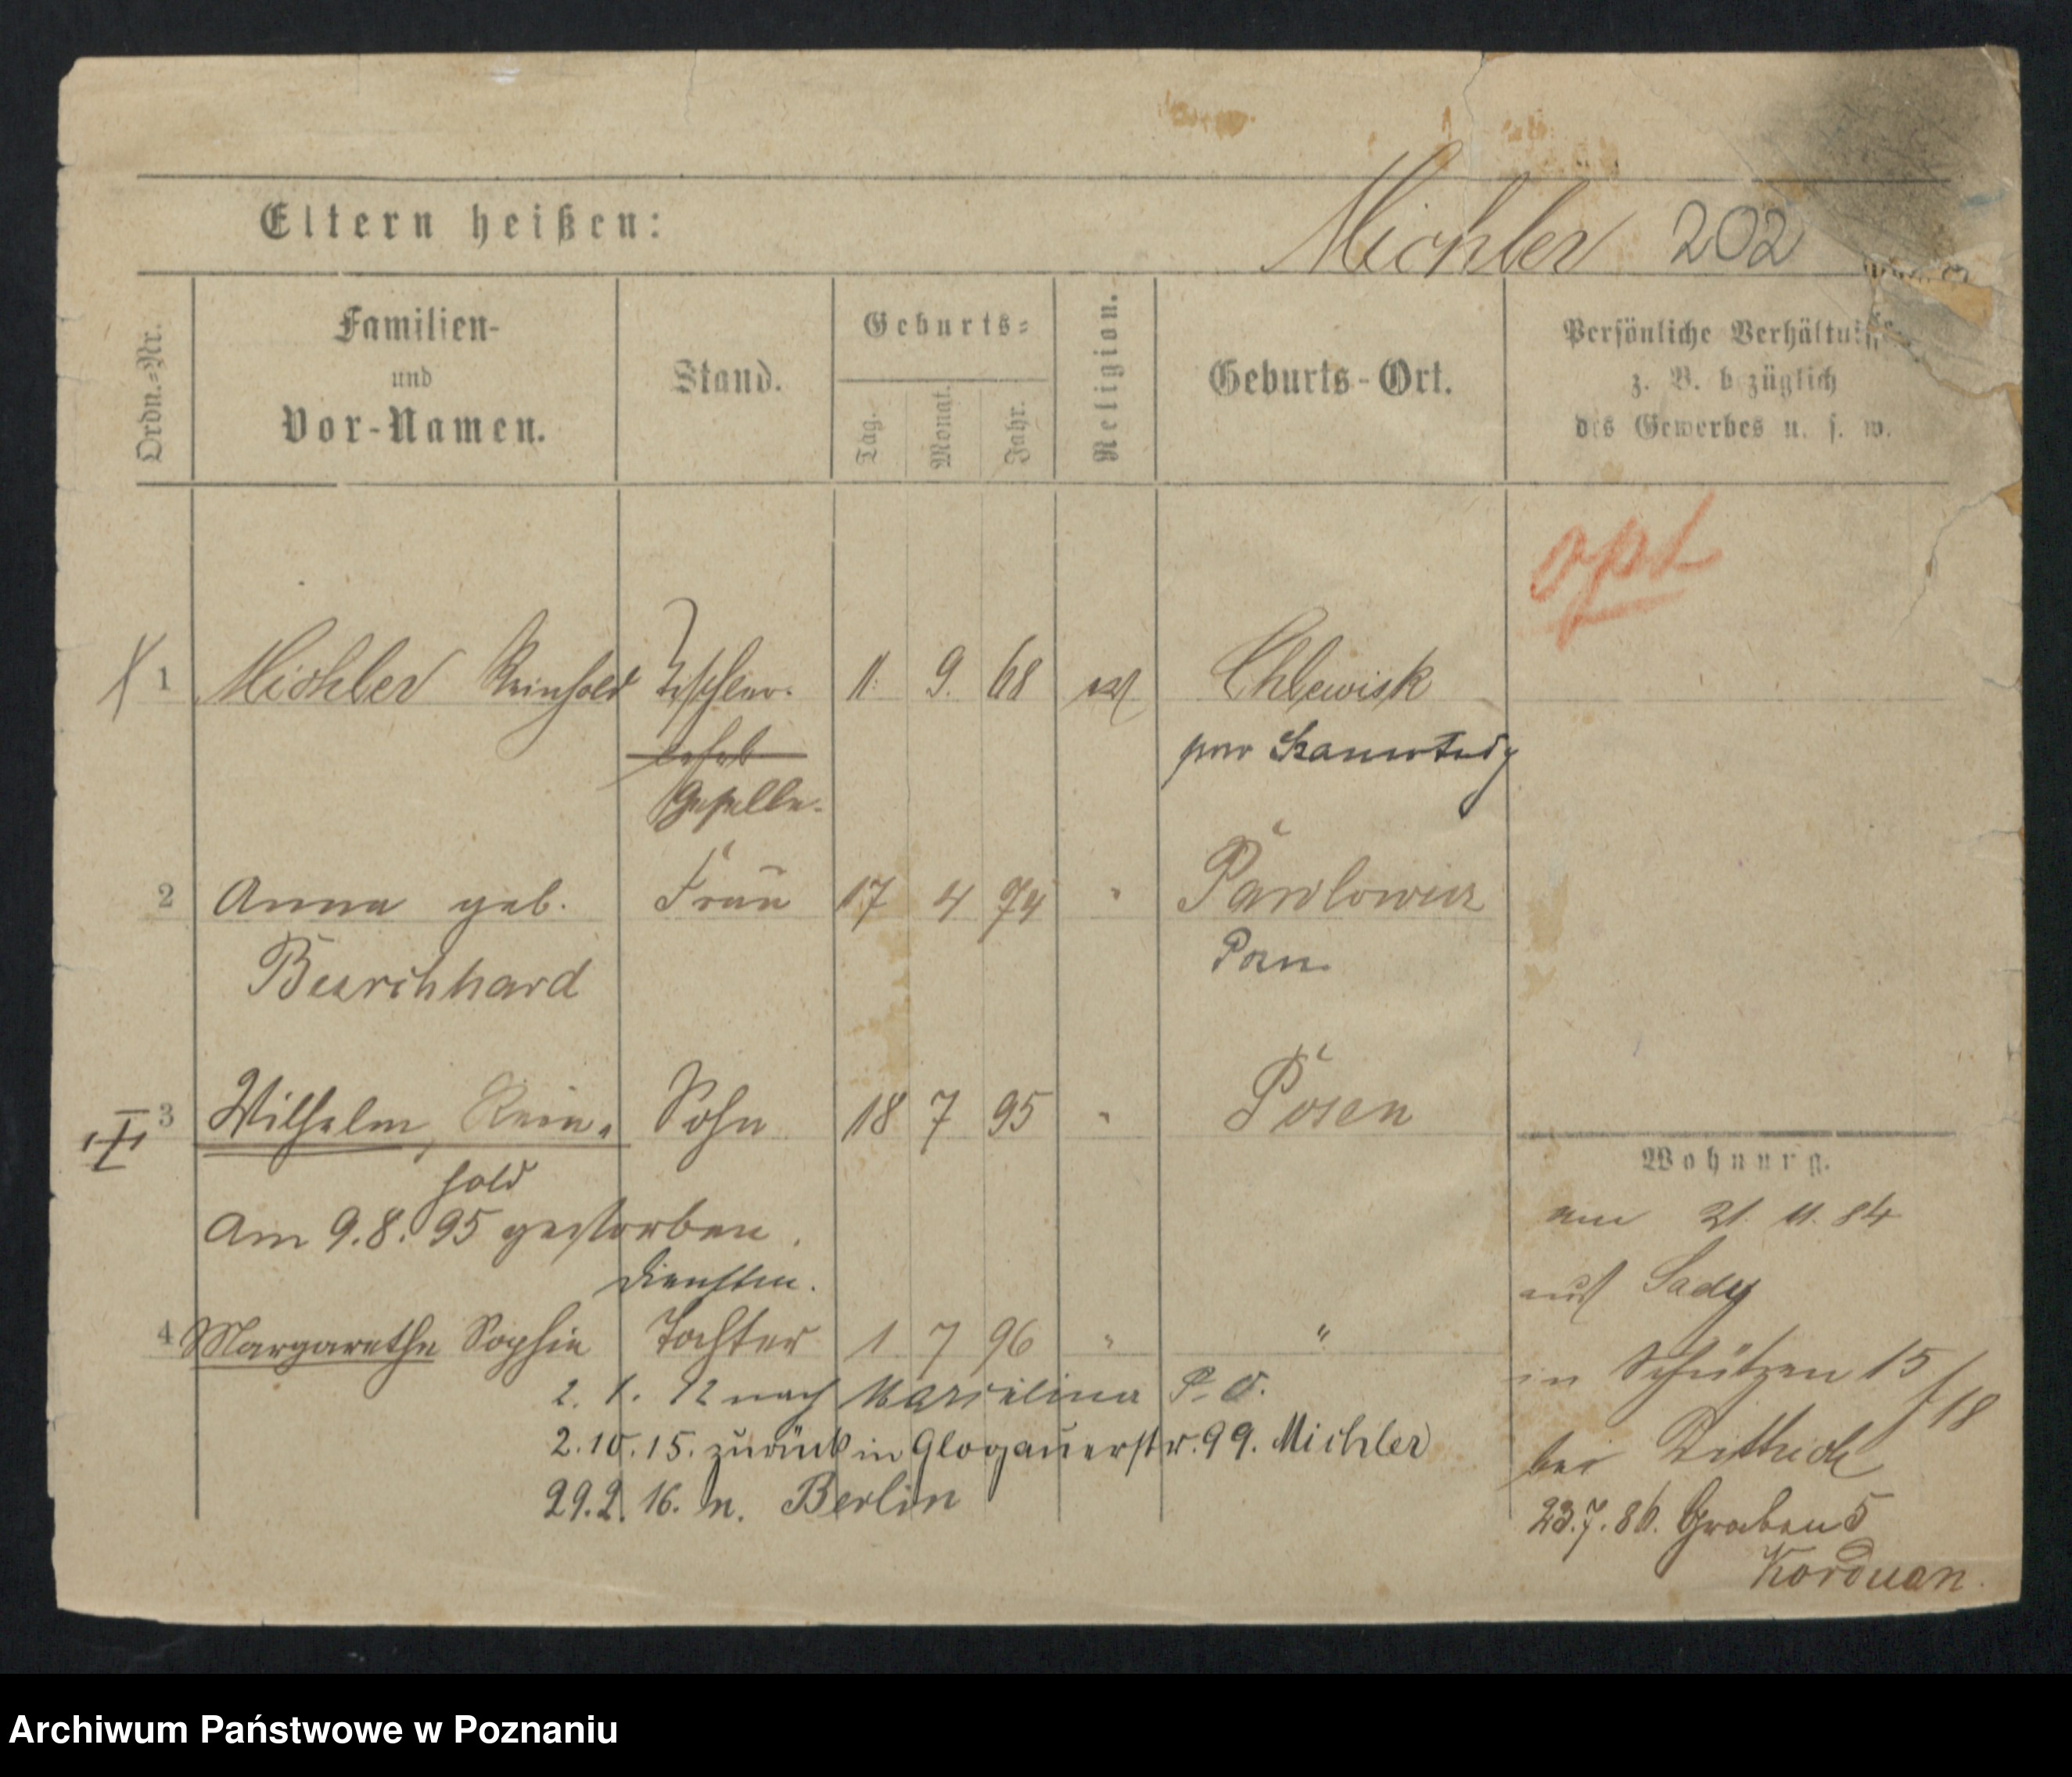 Eltern heißen:
Michler 202
Ordn.-Nr.
Familien-
und
Vor-Namen.
Stand.
Geburts-
Tag.
Monat.
Jahr.
Religion.
Geburts-Ort.
Persönliche Verhältnisse
z. B. bezüglich
des Gewerbes u. s. w.
opt
1 Michler Reinhold Tischler- 11. 9. 68 ev Chlewisk
lehrl
Geselle.
2 Anna geb. Frau 17 4 74 " Pawlowicz
Posen
3 Wilhelm, Rein- Sohn 18 7 95 " Posen
hold
Am 9.8.95 gestorben.
Dienstm.
4 Margarethe Sophie Tochter 1 7 96 " "
2. 1. 12 nach P. O.
2.10.15. zurück in Glogauerstr. 99. Michler
29.2.16. n. Berlin
Wohnung.
am 21. 11. 84
aus Sady
in Schützen 15/18
bei Dittrich
23.7.86. Graben 5
Korduan.
Archiwum Państwowe w Poznaniu